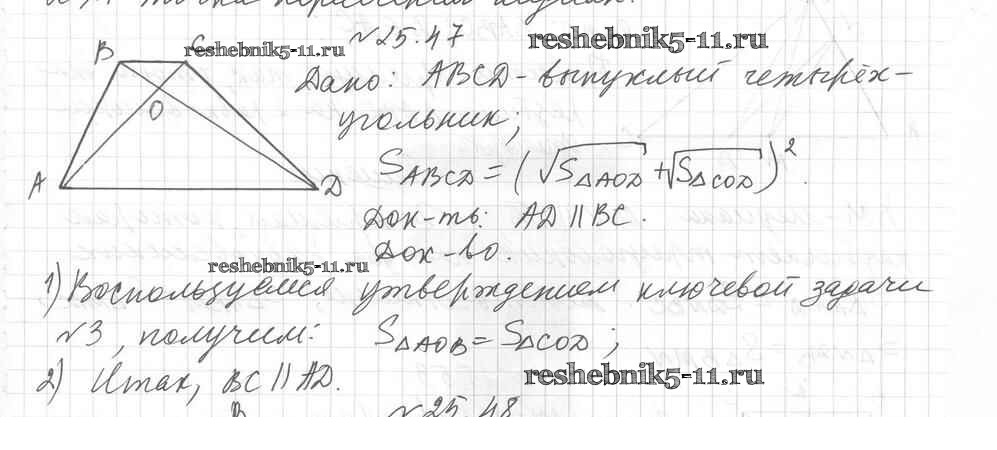 №25.47
reshebnik5-11.ru
B C
reshebnik5-11.ru
Дано: ABCD - выпуклый четырёх-
угольник;
O
S_ABCD = (√S_ΔAOD + √S_ΔCOD)².
A D
Док-ть: AD || BC.
Док-во.
reshebnik5-11.ru
1) Воспользуемся утверждением ключевой задачи
№3, получим: S_ΔAOB = S_ΔCOD;
2) Итак, BC || AD.
reshebnik5-11.ru
B
№25.48